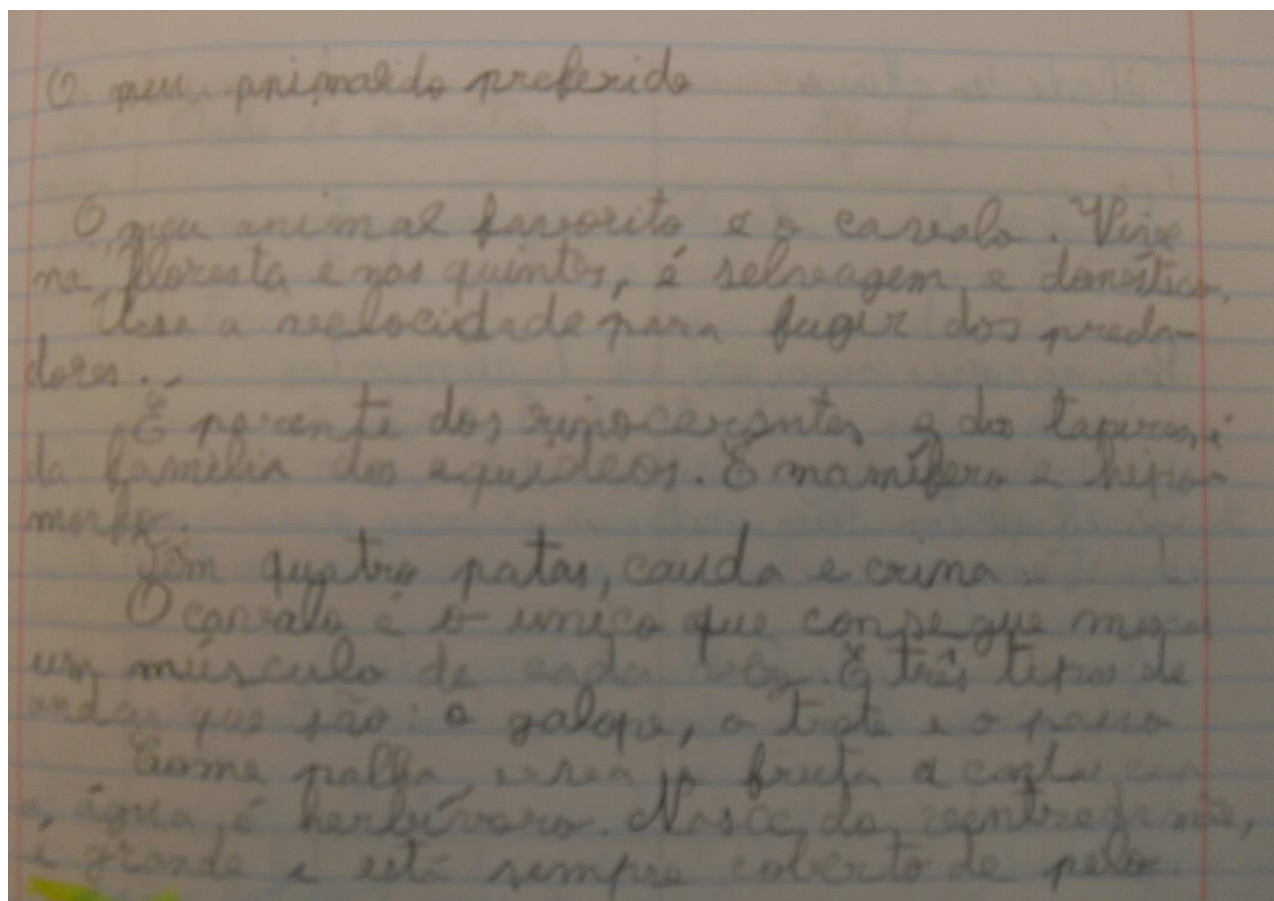 O meu animaldo preferido
O meu animal favorito é o cavalo. Vive
na floresta e nas quintas, é selveagem e doméstico.
Usa a velocidade para fugir dos preda-
dores.
É parente dos rinocerontes e dos tapires, é
da família dos equideos. É mamífero e hipo-
morfo.
Tem quatro patas, cauda e crina.
O cavalo é o unico que consegue mexer
um músculo de cada vez. E três tipos de
andar que são: o galope, o trote e o passo
Come palha, erva, fruta e
água, é herbívoro. Nasce do ventre da mãe,
é grande e está sempre coberto de pelo.